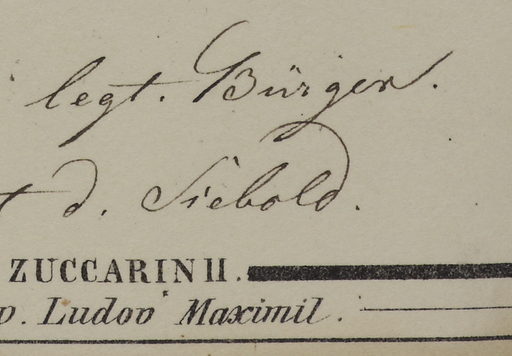 legt. Bürger.
t d. Siebold.
ZUCCARINII.
v. Ludov Maximil.